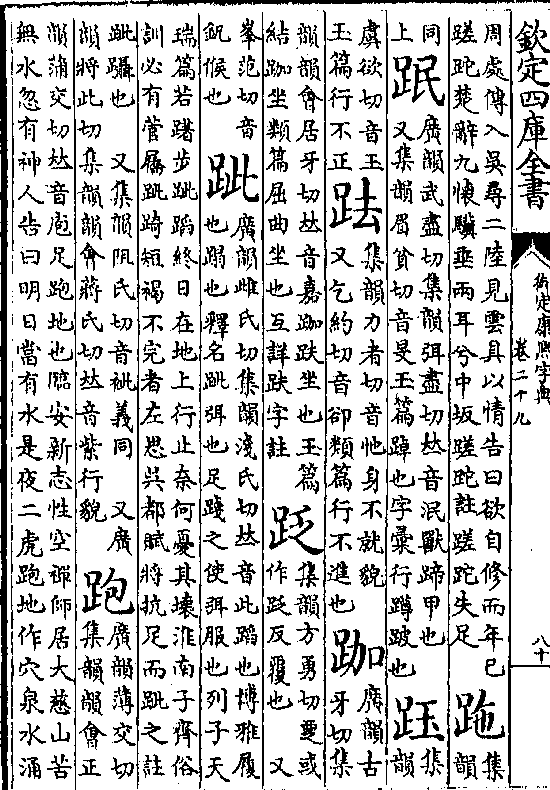 欽定四庫全書
御定康熙字典
卷二十九
八十
周處傳入吳尋二陸見雲具以情告曰欲自修而年已
蹉跎楚辭九懷驥垂兩耳兮中坂蹉跎註蹉跎失足
集
韻
同
上
䟨
廣韻武盡切集韻弭盡切𠀤音泯獸蹄甲也
又集韻眉貧切音旻玉篇踔也字彙行蹲跛也
集
韻
虞欲切音玉
玉篇行不正
集韻力者切音他身不就貌
又乞約切音卻類篇行不進也
跏
廣韻古
牙切集
韻韻會居牙切𠀤音嘉跏趺坐也玉篇
結跏坐類篇屈曲坐也互詳趺字註
䟪
集韻方勇切覂或
作䟪反覆也 又
峯范切音
釩候也
跐
廣韻雌氏切集韻淺氏切𠀤音此蹈也博雅履
也蹋也釋名跐弭也足踐之使弭服也列子天
瑞篇若躇步跐蹈終日在地上行止奈何憂其壞淮南子齊俗
訓必有菅屩跐踦短褐不完者左思吳都賦將抗足而跐之註
跐躡也 又集韻阻氏切音批義同 又廣
韻將此切集韻韻會蔣氏切𠀤音紫行貌
跑
廣韻薄交切
集韻韻會正
韻蒲交切𠀤音庖足跑地也臨安新志性空禪師居大慈山苦
無水忽有神人告曰明日當有水是夜二虎跑地作穴泉水涌